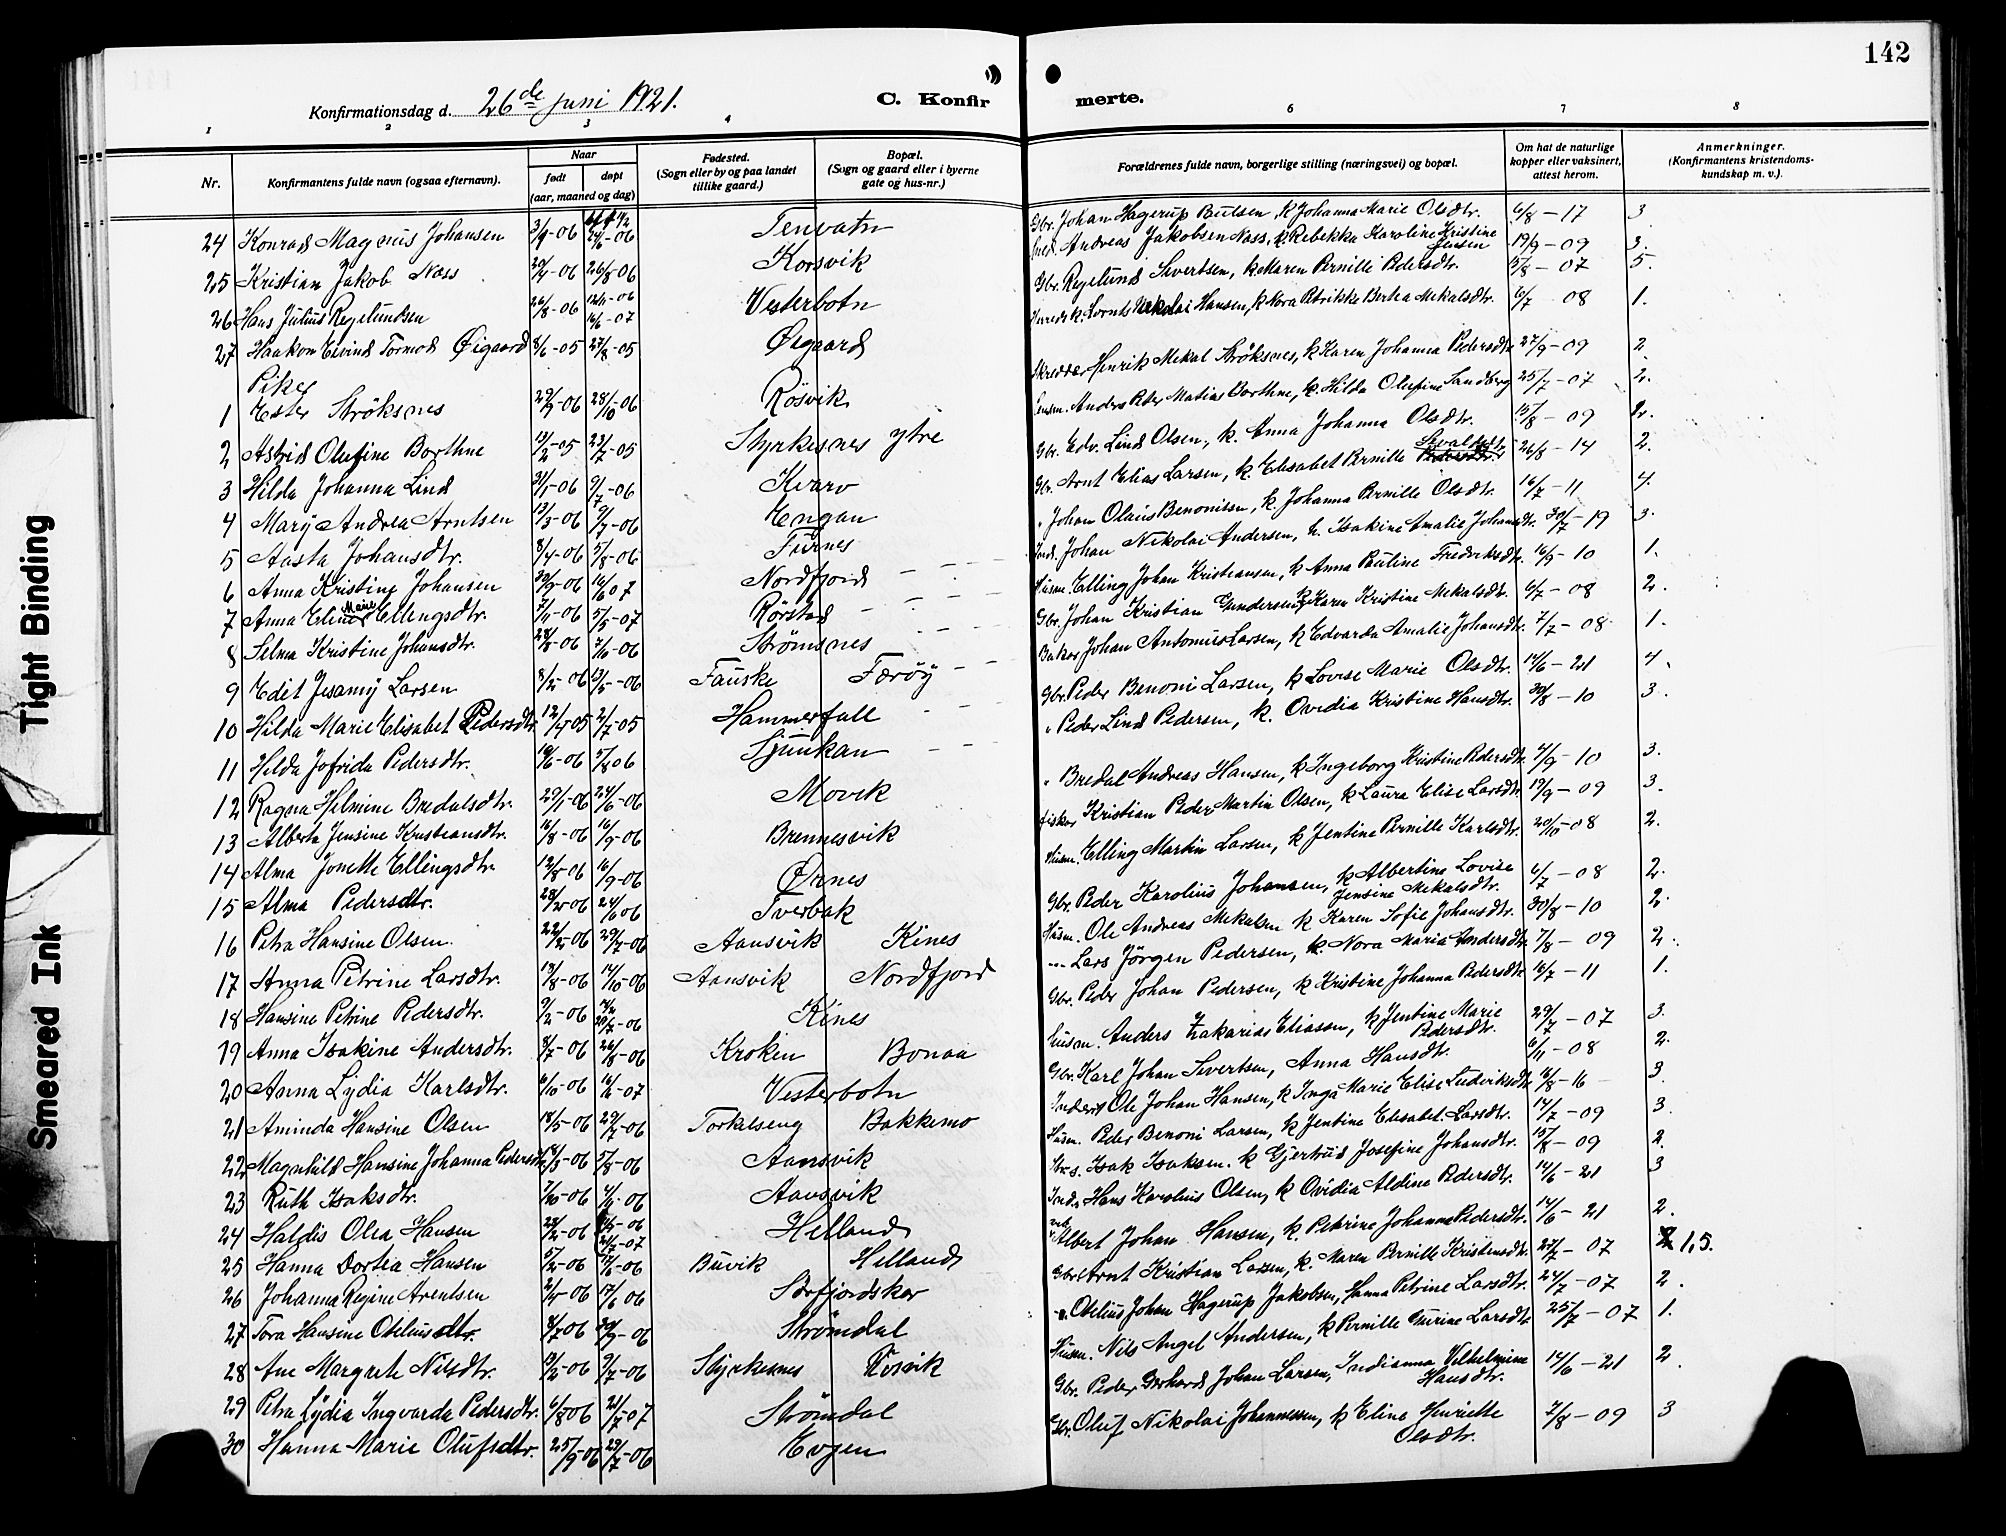 142
Konfirmationsdag d. 26de juni 1921. C. Konfir merte.
1 2 3 4 6 7 8
Nr. Konfirmantens fulde navn (ogsaa efternavn). Naar født døpt (aar, maaned og dag)
Fødested. (Sogn eller by og paa landet tillike gaard.)
Bopæl. (Sogn og gaard eller i byerne gate og hus-nr.)
Forældrenes fulde navn, borgerlige stilling (næringsvei) og bopæl.
Om hat de naturlige kopper eller vaksinert, attest herom.
Anmerkninger. (Konfirmantens kristendoms-kundskap m. v.).
24 Konrad Magnus Johansen 3/9-06 24/6-06 Tenvatn Gbr. Johan Hagerup Bulsen, k Johanna Marie Olsdtr. 6/8-17 3
25 Kristian Jakob Nass 26/8-06 Korsvik Andreas Jakobsen Nass, k. Rebekka Karoline Kristine Jensen 19/9-09 3.
26 Hans Julius Regelundsen 26/8-06 Vesterbotn Gbr. Regelund Sivertsen, k. Maren Pernille Pedersdtr. 15/8-07 5.
27 Haakon Eivind Tormod Øigaard 8/6-05 27/8-05 Øigaard Hansen, k Nora Petrikke Berhea Mekalsdtr. 6/7 08 1.
Piker
1 Ester Strøksnes 29/9-06 28/10-06 Røsvik Skredder Henrik Mekal Strøksnes, k Karen Johanna Pedersdtr 27/9-09 2.
2 Astrid Olufine Borthne 13/2-05 23/7-05 Styrkesnes ytre Anders Peder Matias Borthne, k. Hilda Olufine Sandberg 25/7-07 2.
3 Hilda Johanna Lind 31/1-06 9/7-06 Kvarv Gbr. Edv. Lind Olsen, k. Anna Johanna Olsdtr. 15/8-09 2.
4 Mary Andrea Arntsen 13/3-06 9/7-06 Engan Gbr. Arnt Elias Larsen, k. Elisabet Pernille Sivaldsdtr 26/8-14 2.
5 Aasta Johansdtr. 8/4-06 5/8-06 Furnes " Johan Olaus Benonisen, k. Johanna Pernille Olsdtr. 16/7-11 4.
6 Anna Kristine Johansen Nordfjord Johan Nikolai Andersen, k. Isakine Amalie Johansdtr. 30/7-19 3.
7 Anna Eline Marie Ellingsdtr. 7/11-06 5/5-07 Rørstad Husm. Elling Johan Kristiansen, k Anna Pauline Fredriksdtr. 16/9-10 1.
8 Selma Kristine Johansdtr. Strømsnes Gbr. Johan Kristian Gundersen, k Karen Kristine Mekalsdtr. 6/7-08 2.
9 Edit Jesamy Larsen 8/2-06 13/5-06 Fauske Færøy Baker Johan Antonius Larsen, k Edvarda Amalie Johansdtr. 7/7-08 1.
10 Hilda Marie Elisabet Pedersdtr. 2/7-05 Hammerfall Gbr. Peder Benoni Larsen, k Lovise Marie Olsdtr. 14/6-21 4.
11 Hilda Jofrida Pedersdtr. 5/8 06 Sjunkan " Peder Lind Pedersen, k. Ovidia Kristine Hansdtr. 30/8-10 3.
12 Ragna Helmine Bredalsdtr. 29/1-06 24/6-06 Movik " Bredal Andreas Hansen, k Ingeborg Kristine Pedersdtr 4/9-10 3.
13 Alberta Jensine Kristiansdtr. 16/8-06 16/9-06 Brennesvik Fisker Kristian Peder Martin Olsen, k Laura Elise Larsdtr. 19/9-09 3.
14 Alma Jonette Ellingsdtr. 12/8-06 16/9-06 Ørnes Husm. Elling Martin Larsen, k Jentine Pernille Karlsdtr. 20/10-08 2.
15 Alma Pedersdtr. 28/2-06 24/6 06 Tverbak Gbr. Peder Karolius Johansen, k Albertine Lovise Jensine Mekalsdtr. 6/7-08 2.
16 Petra Hansine Olsen 22/2-06 29/7-06 Aansvik Kines Husm. Ole Andreas Mekalsen k Karen Sofie Johansdtr. 30/8-10 2.
17 Anna Petrine Larsdtr. 13/8-06 14/10-06 Aansvik Nordfjord Lars Jörgen Pedersen, k. Nora Maria Andersdtr 7/8-09 2.
18 Hansine Petrine Pedersdtr. 9/2-06 29/7-06 Kines Gbr. Peder Johan Pedersen, k Kristine Johanna Pedersdtr. 16/7-11 1.
19 Anna Isakine Andersdtr. 8/7-06 26/8-06 Kroken Bonaa Husm. Anders Zakarias Eliassen, k Jentine Marie Pedersdtr. 29/7-07 3.
20 Anna Lydia Karlsdtr. 6/10-06 Vesterbotn Gbr. Karl Johan Sivertsen, Anna Hansdtr. 6/11-08 2.
21 Aminda Hansine Olsen 18/5-06 29/7-06 Torkelseng Bakkemo Inderst Ole Johan Hansen, k Inga Marie Elise Ludviksdtr 16/8-16 3.
22 Magnhild Hansine Johanna Pedersdtr 5/8-06 Aansvik Husm. Peder Benoni Larsen, k Jentine Elisabet Larsdtr. 14/7-09 3.
23 Ruth Isaksdtr. Aansvik Isak Isaksen. k Gjertrud Josefine Johansdtr. 15/8-09 2.
24 Haldis Olea Hansen Helland Inds. Hans Karolius Olsen, k Ovidia Aldine Pedersdtr. 14/6-21 3
25 Hanna Dortea Hansen Buvik Helland Albert Johan Hansen, k. Petrine Johanna Pedersdtr. 14/6-21 2.
26 Johanna Regine Arentsen 17/6 06 Sørfjordskar Gbr. Arnt Kristian Larsen, k. Maren Pernille Kristensdtr. 27/7-07 1,5.
27 Tora Hansine Oteliusdtr. Strømdal Otelius Johan Hagerup Jakobsen, Hanna Petrine Larsdtr. 24/7-07 2.
28 Ane Margrete Nilsdtr. 9/7-06 Styrkesnes Røsvik Husm. Nils Angel Andersen, k Pernille Larsdtr 25/7-07 1.
29 Petra Lydia Ingvarda Pedersdtr. 6/8 06 Strømdal Gbr. Peder Gerhard Johan Larsen, Indianna Vilhelmine Hansdtr. 14/6-21 2.
30 Hanna Marie Olufsdtr. 29/7-06 Evjen Gbr. Oluf Nikolai Johannessen, k Eline Henriette Olsdtr. 7/8-09 3
Tight Binding
Smeared Ink